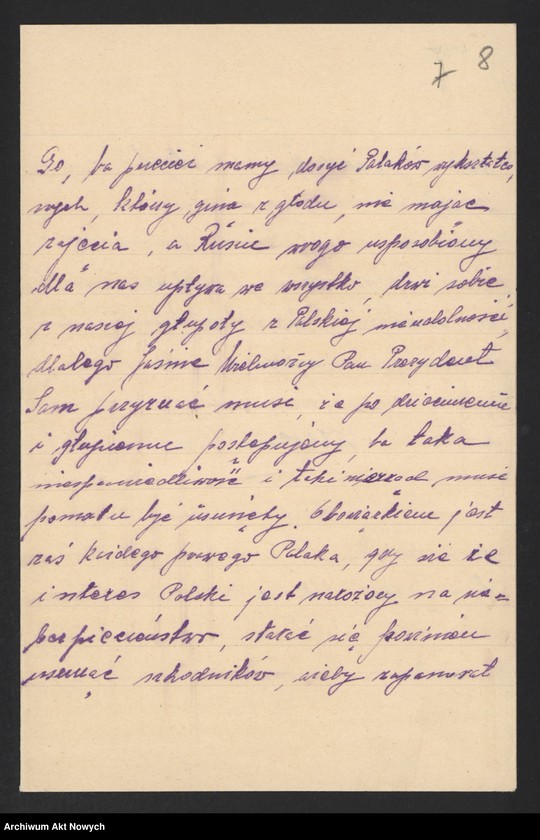 7 8
Go, ba przecież mamy dosyć Polaków wykształco,
nych, którzy giną z głodu, nie mając
zajęcia, a Rusin wrogo usposobiony
dla nas opływa we wszystko, drwi sobie
z naszej głupoty z Polskiej nieudolności,
dlatego Jaśnie Wielmożny Pan Prezydent
Sam przyznać musi, że po dziecinnemu
i głupiemu postępujemy, ba taka
niesprawiedliwość i taki nierząd musi
pomału być usunięty. Obowiązkiem jest
zaś każdego prawego Polaka, gdy wie że
interes Polski jest narażony na nie-
bezpieczeństwo, starać się powinien
usuwać szkodników, ażeby zapanował
Archiwum Akt Nowych